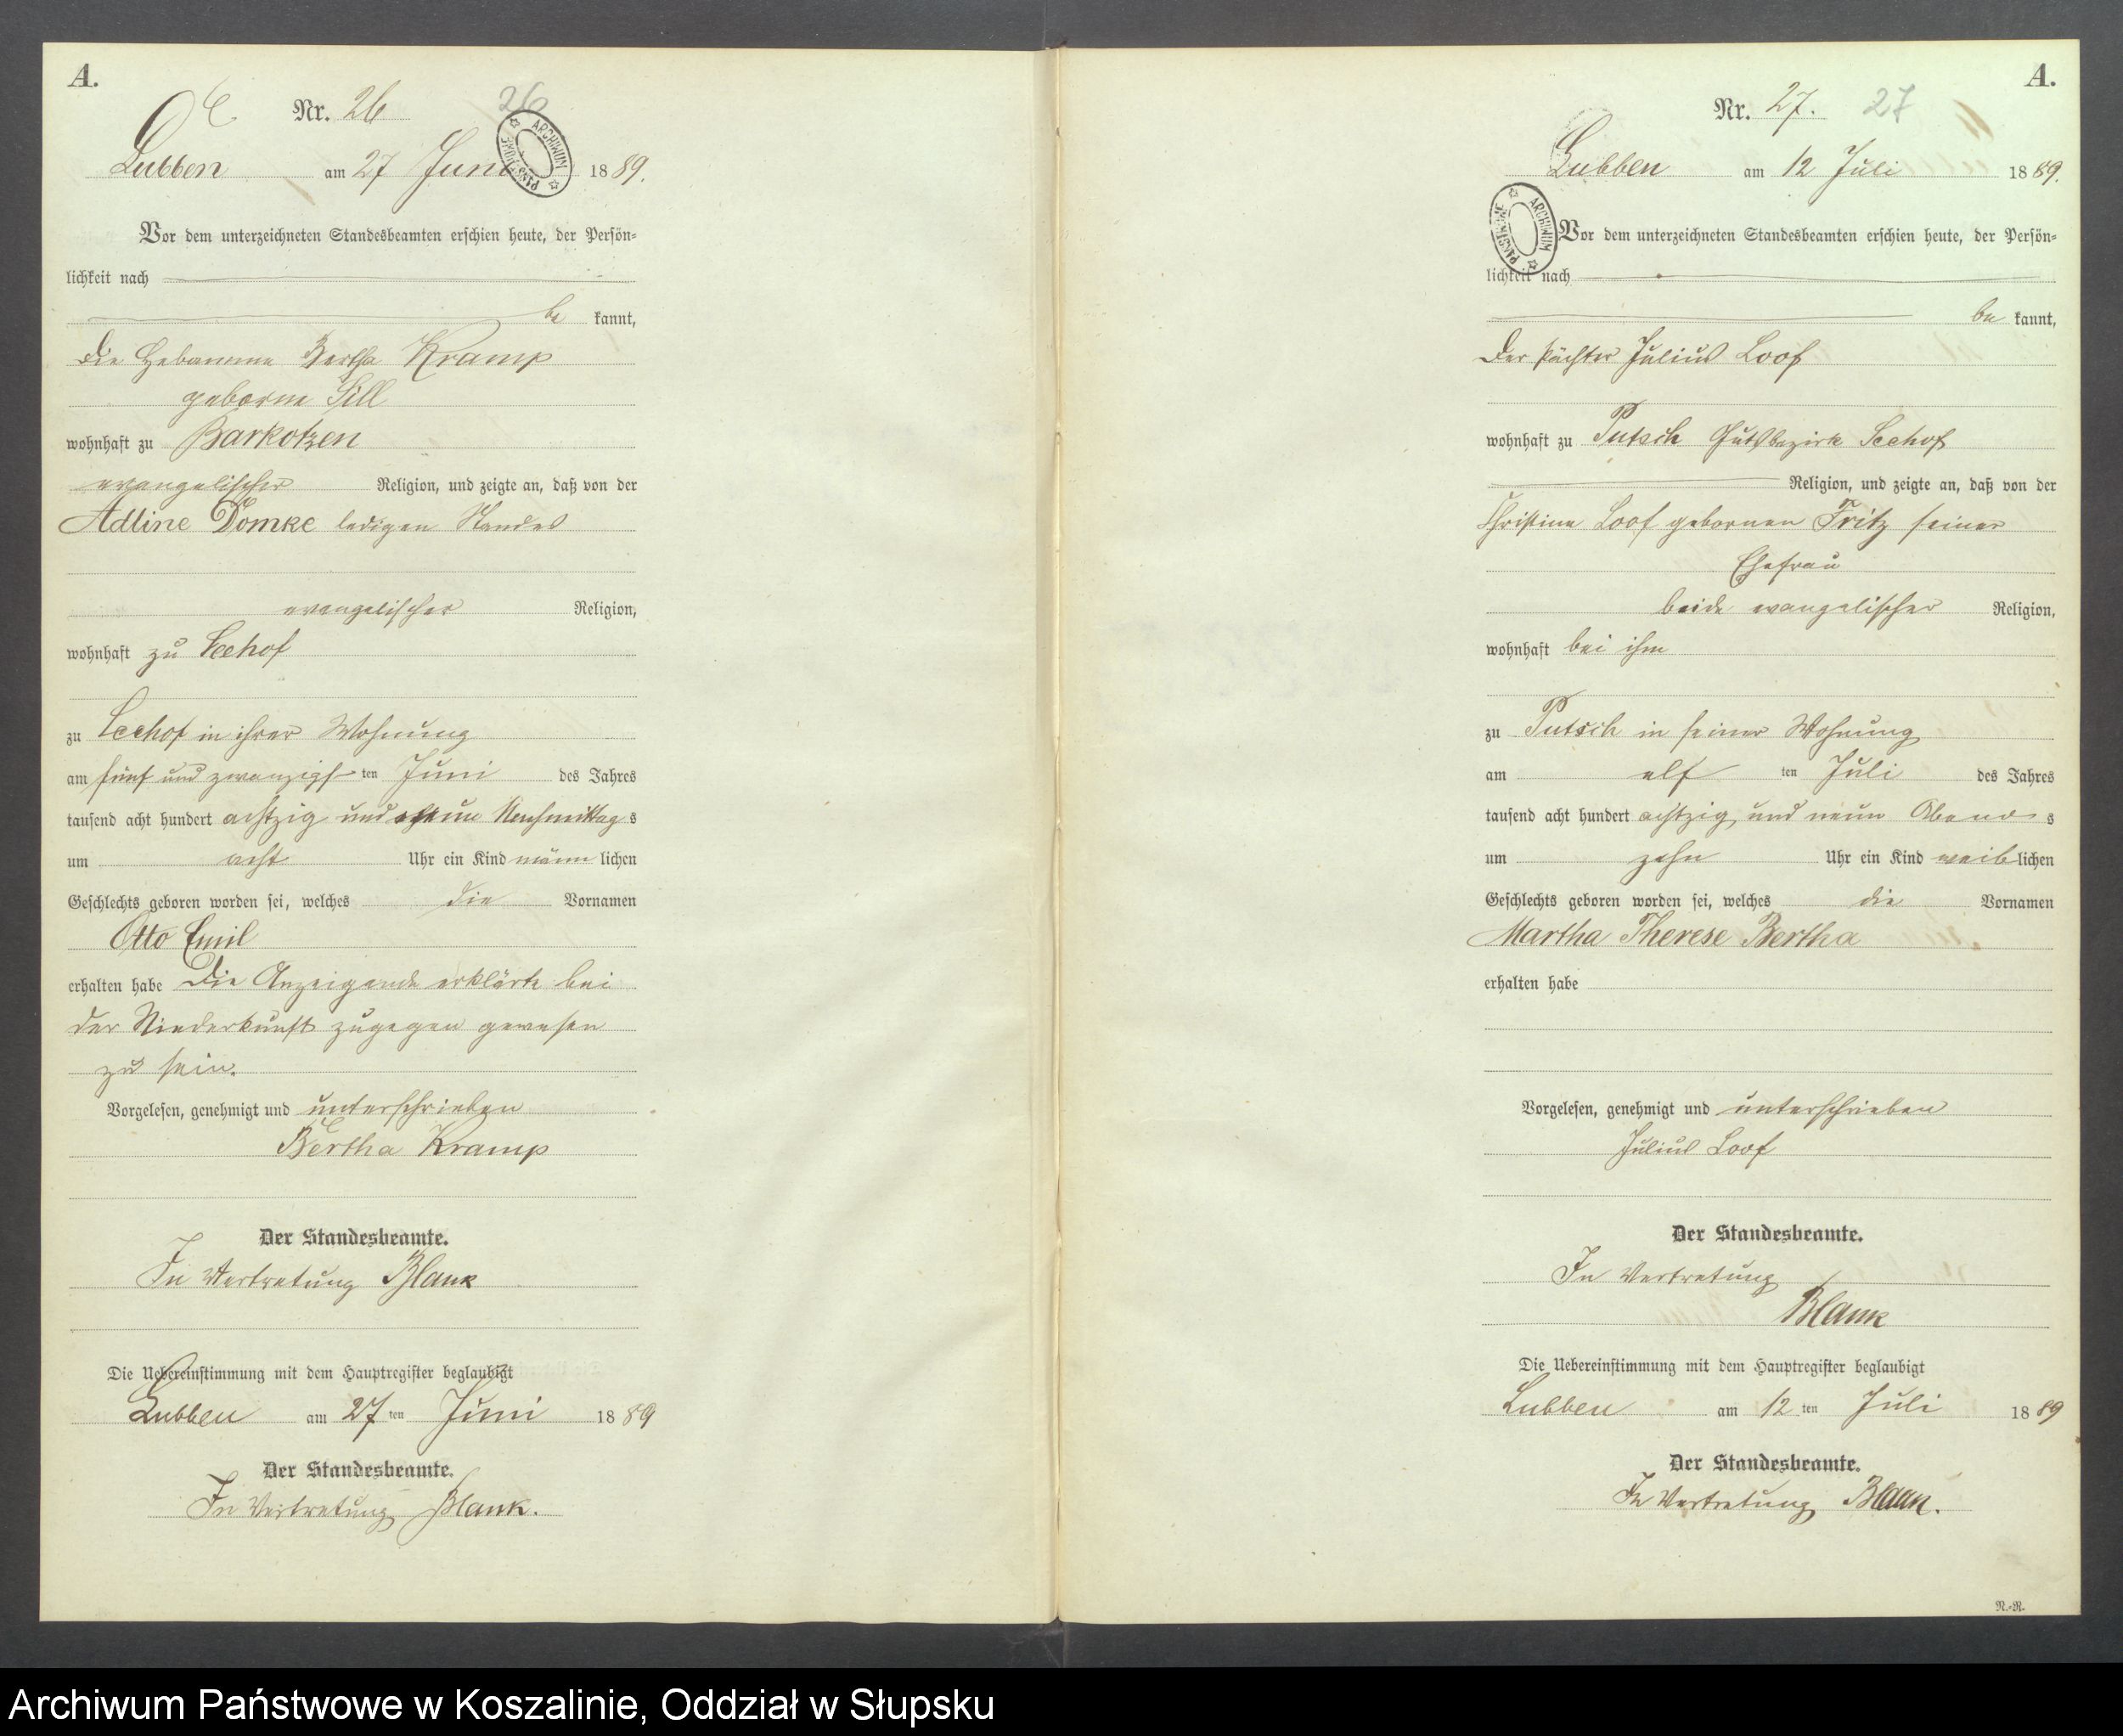 A.
Nr. 26
26
Lubben am 27 Juni 1889.
ARCHIWUM PAŃSTWOWE
Vor dem unterzeichneten Standesbeamten erschien heute, der Persön-
lichkeit nach
be kannt,
die Hebamme Bertha Kramp
geborne Sill
wohnhaft zu Barkotzen
evangelischer Religion, und zeigte an, daß von der
Adline Domke ledigen Standes
evangelischer Religion,
wohnhaft zu Seehof
zu Seehof in ihrer Wohnung
am fünf und zwanzigsten Juni des Jahres
tausend acht hundert achtzig und neun Nachmittags
um acht Uhr ein Kind männlichen
Geschlechts geboren worden sei, welches die Vornamen
Otto Emil
erhalten habe Die Anzeigende erklärte bei
der Niederkunft zugegen gewesen
zu sein.
Vorgelesen, genehmigt und unterschrieben
Bertha Kramp
Der Standesbeamte.
In Vertretung Blank
Die Uebereinstimmung mit dem Hauptregister beglaubigt
Lubben am 27ten Juni 1889
Der Standesbeamte.
In Vertretung Blank.
A.
Nr. 27.
27
Lubben am 12 Juli 1889.
ARCHIWUM PAŃSTWOWE
Vor dem unterzeichneten Standesbeamten erschien heute, der Persön-
lichkeit nach
be kannt,
der Pächter Julius Loof
wohnhaft zu Putsch Gutsbezirk Seehof
Religion, und zeigte an, daß von der
Christine Loof gebornen Fritz seiner
Ehefrau
beide evangelischer Religion,
wohnhaft bei ihm
zu Putsch in seiner Wohnung
am elf ten Juli des Jahres
tausend acht hundert achtzig und neun Abends
um zehn Uhr ein Kind weiblichen
Geschlechts geboren worden sei, welches die Vornamen
Martha Therese Bertha
erhalten habe
Vorgelesen, genehmigt und unterschrieben
Julius Loof
Der Standesbeamte.
In Vertretung
Blank
Die Uebereinstimmung mit dem Hauptregister beglaubigt
Lubben am 12ten Juli 1889
Der Standesbeamte.
In Vertretung Blank.
N.-R.
Archiwum Państwowe w Koszalinie, Oddział w Słupsku